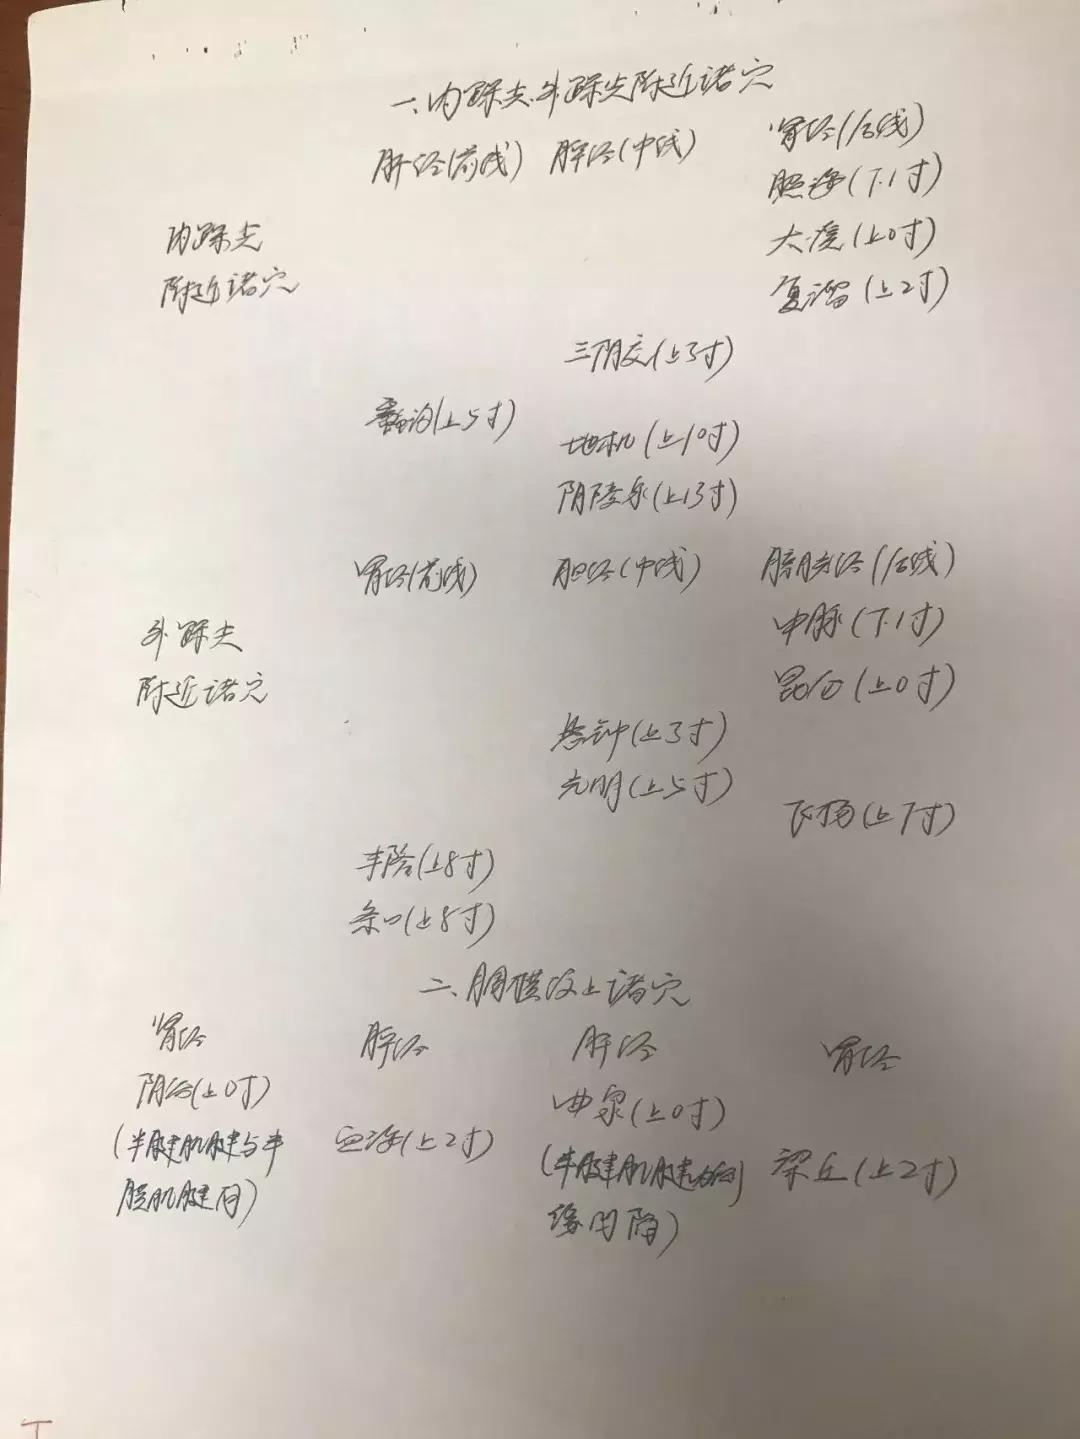 一、内踝尖、外踝尖附近诸穴
肝经(前线) 脾经(中线) 肾经(后线)
照海(下1寸)
内踝尖 太溪(上0寸)
附近诸穴 复溜(上2寸)
三阴交(上3寸)
蠡沟(上5寸)
地机(上10寸)
阴陵泉(上13寸)
胃经(前线) 胆经(中线) 膀胱经(后线)
外踝尖 申脉(下1寸)
附近诸穴 昆仑(上0寸)
悬钟(上3寸)
光明(上5寸)
飞扬(上7寸)
丰隆(上8寸)
条口(上8寸)
二、腘横纹上诸穴
肾经 脾经 肝经 胃经
阴谷(上0寸) 曲泉(上0寸)
(半腱肌腱与半 血海(上2寸) (半腱肌腱内 梁丘(上2寸)
膜肌腱间) 缘凹陷)